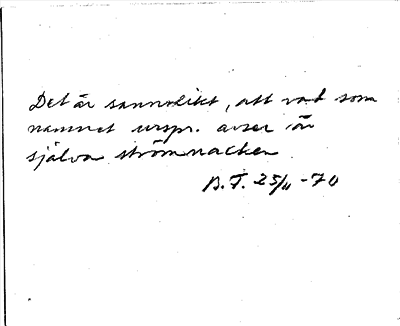 Det är sannolikt, att vad som
namnet urspr. avser är
själva strömnacken
B. T. 25/11 -70